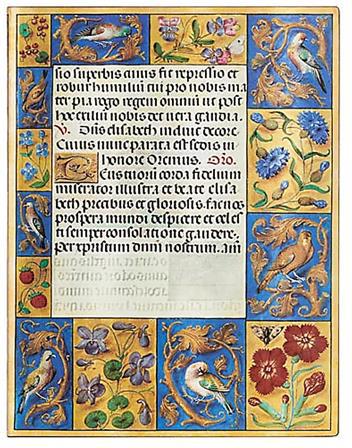 sio superbis cuius fit repressio et
robur humilui cui pro nobis ma
ter pia rogo regem omniū ut post
hoc exiliū nobis det vera gaudia.
V. Dūs elisabeth induit decore.
Cuius nunc parata est sedis in
honore Oremus. Oro.
tuorū corda fidelium
miserator illustra et beate elisa
beth precibus gloriosis fac nos
prospera mundi despicere et celes
ti semper consolatione gaudere.
Per xpristum dnm nostrum. am